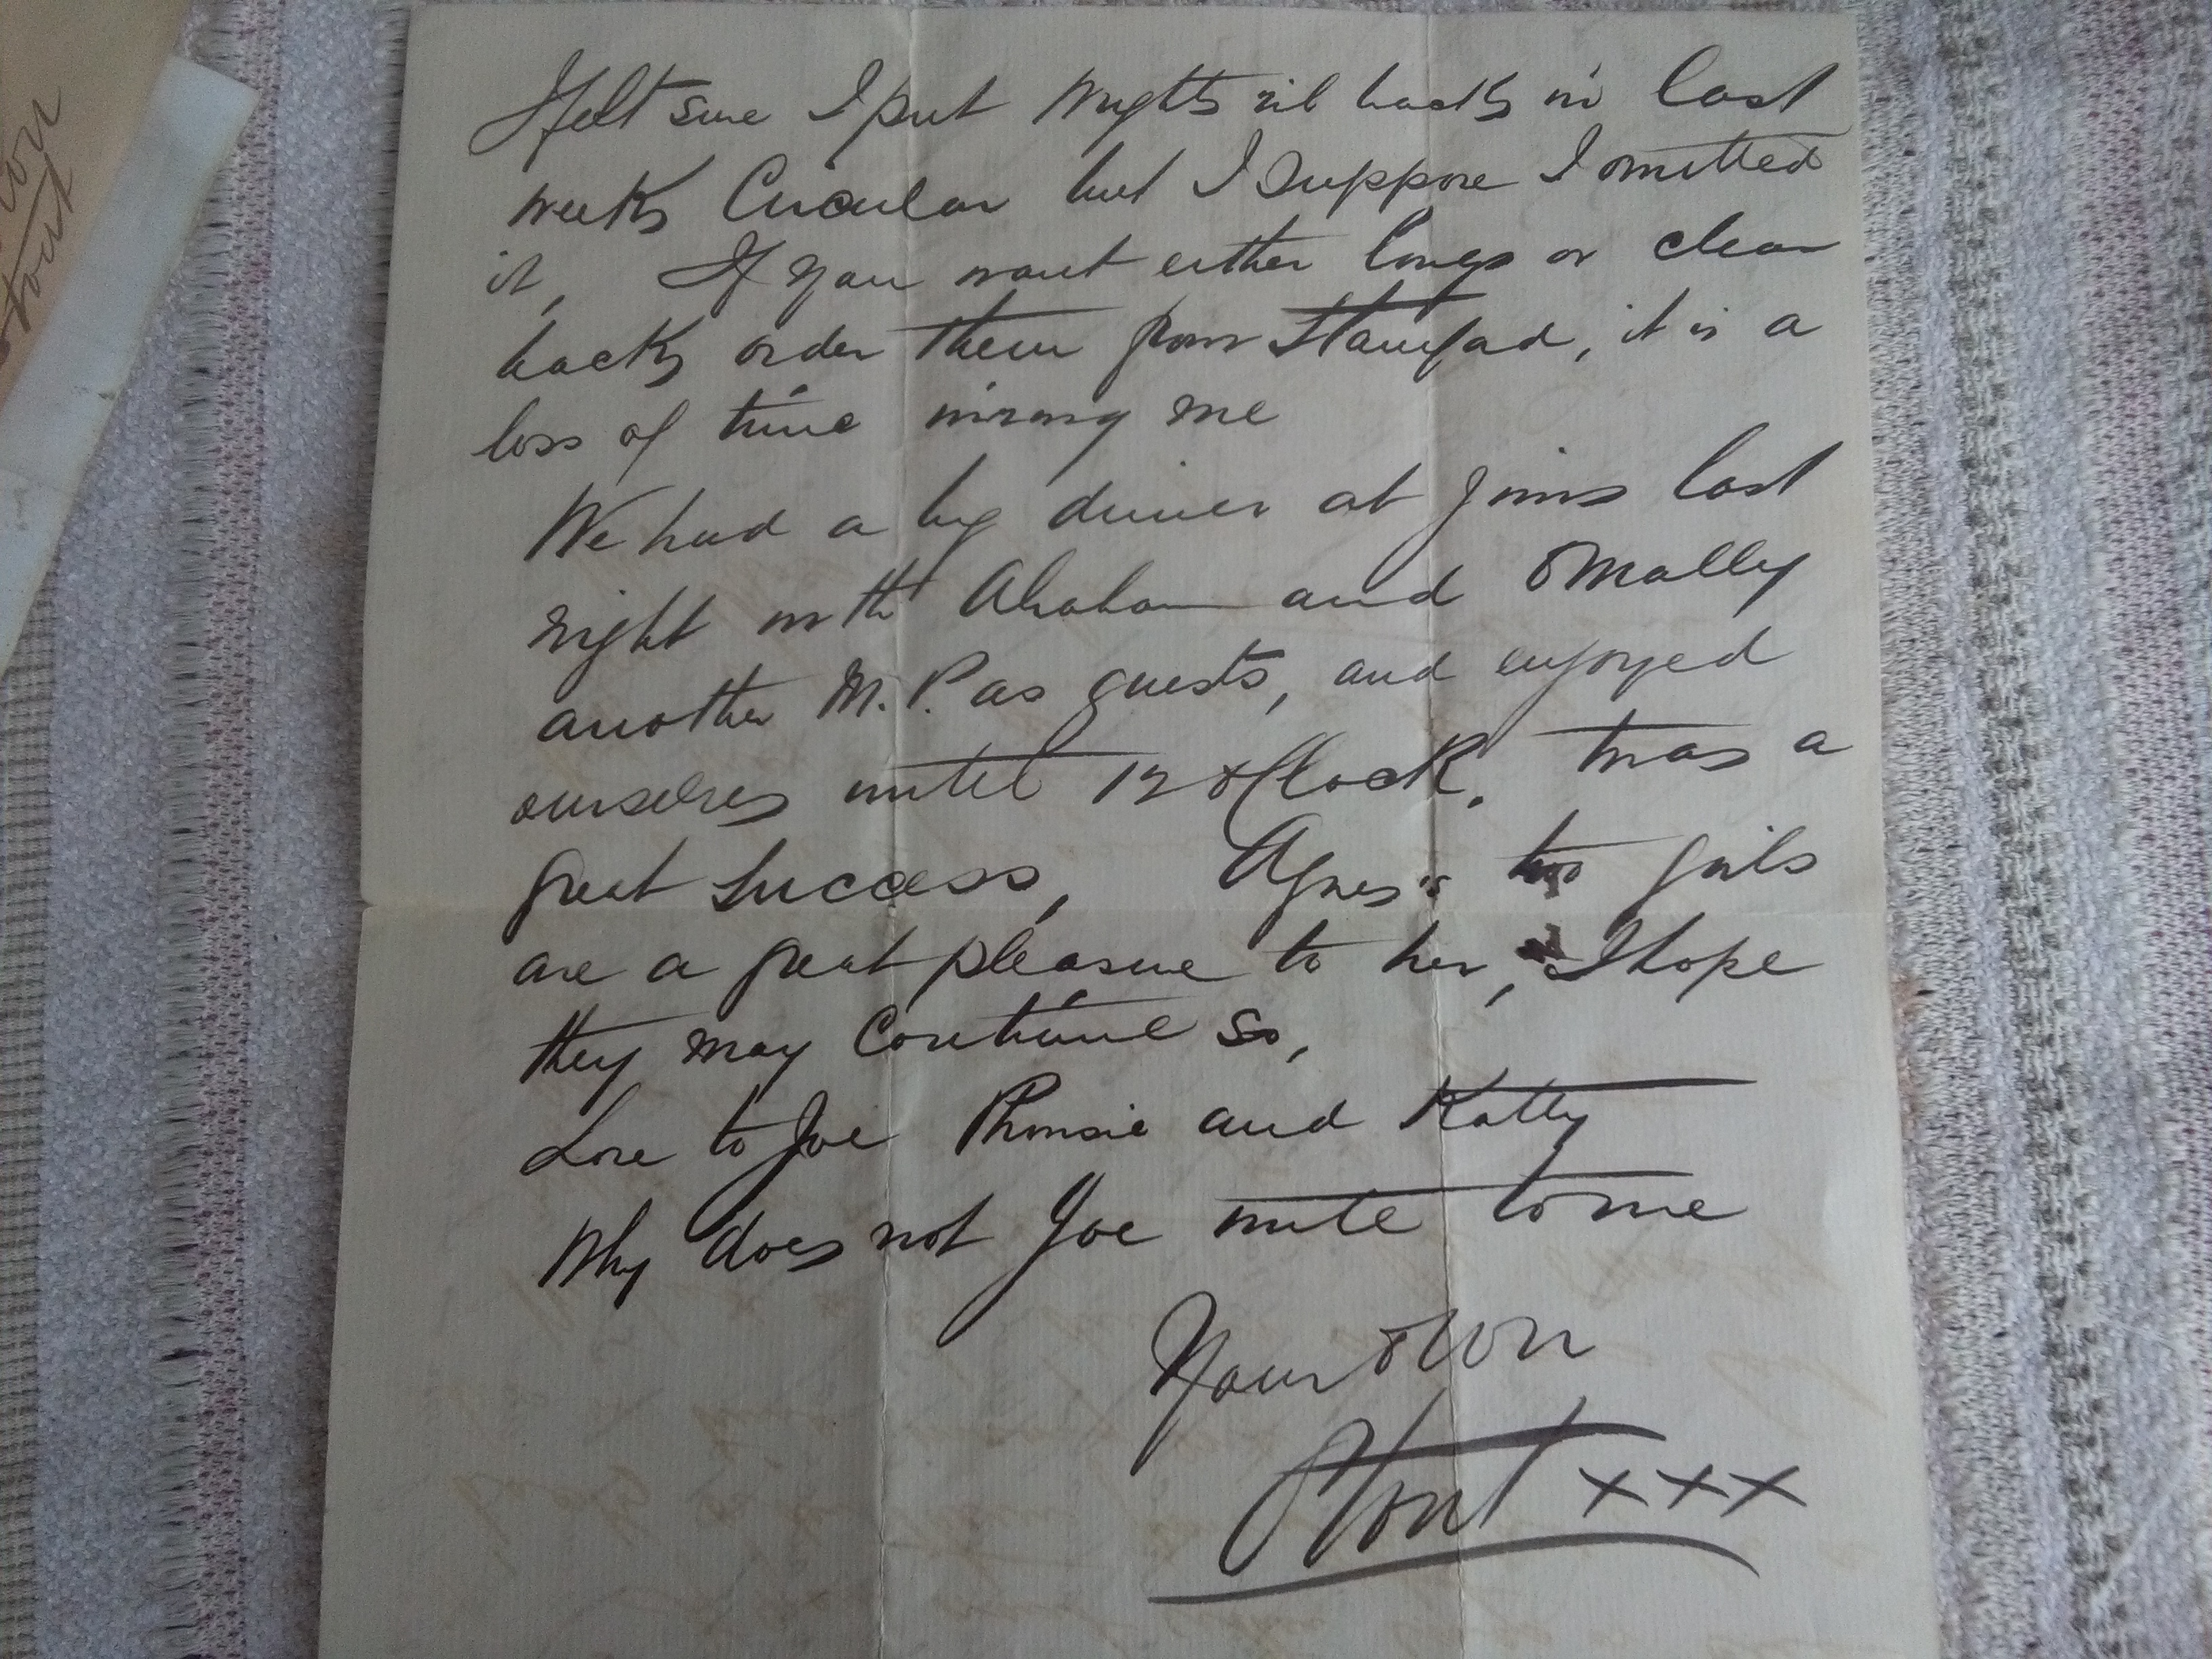 I felt sure I put Wrights rib backs in last
weeks Circular but I suppose I omitted
it, If you want either longs or clear
backs order them from Stamford, it is a
loss of time wiring me
We had a big dinner at Jims last
night with Abraham and O'Mally
another M.P. as guests, and enjoyed
ourselves until 12 o'Clock. twas a
great success, Agnes's two girls
are a great pleasure to her, I hope
they may continue so,
Love to Joe Phonsie and Katty
Why does not Joe write to me
Your own
Stout xxx
own
Stout